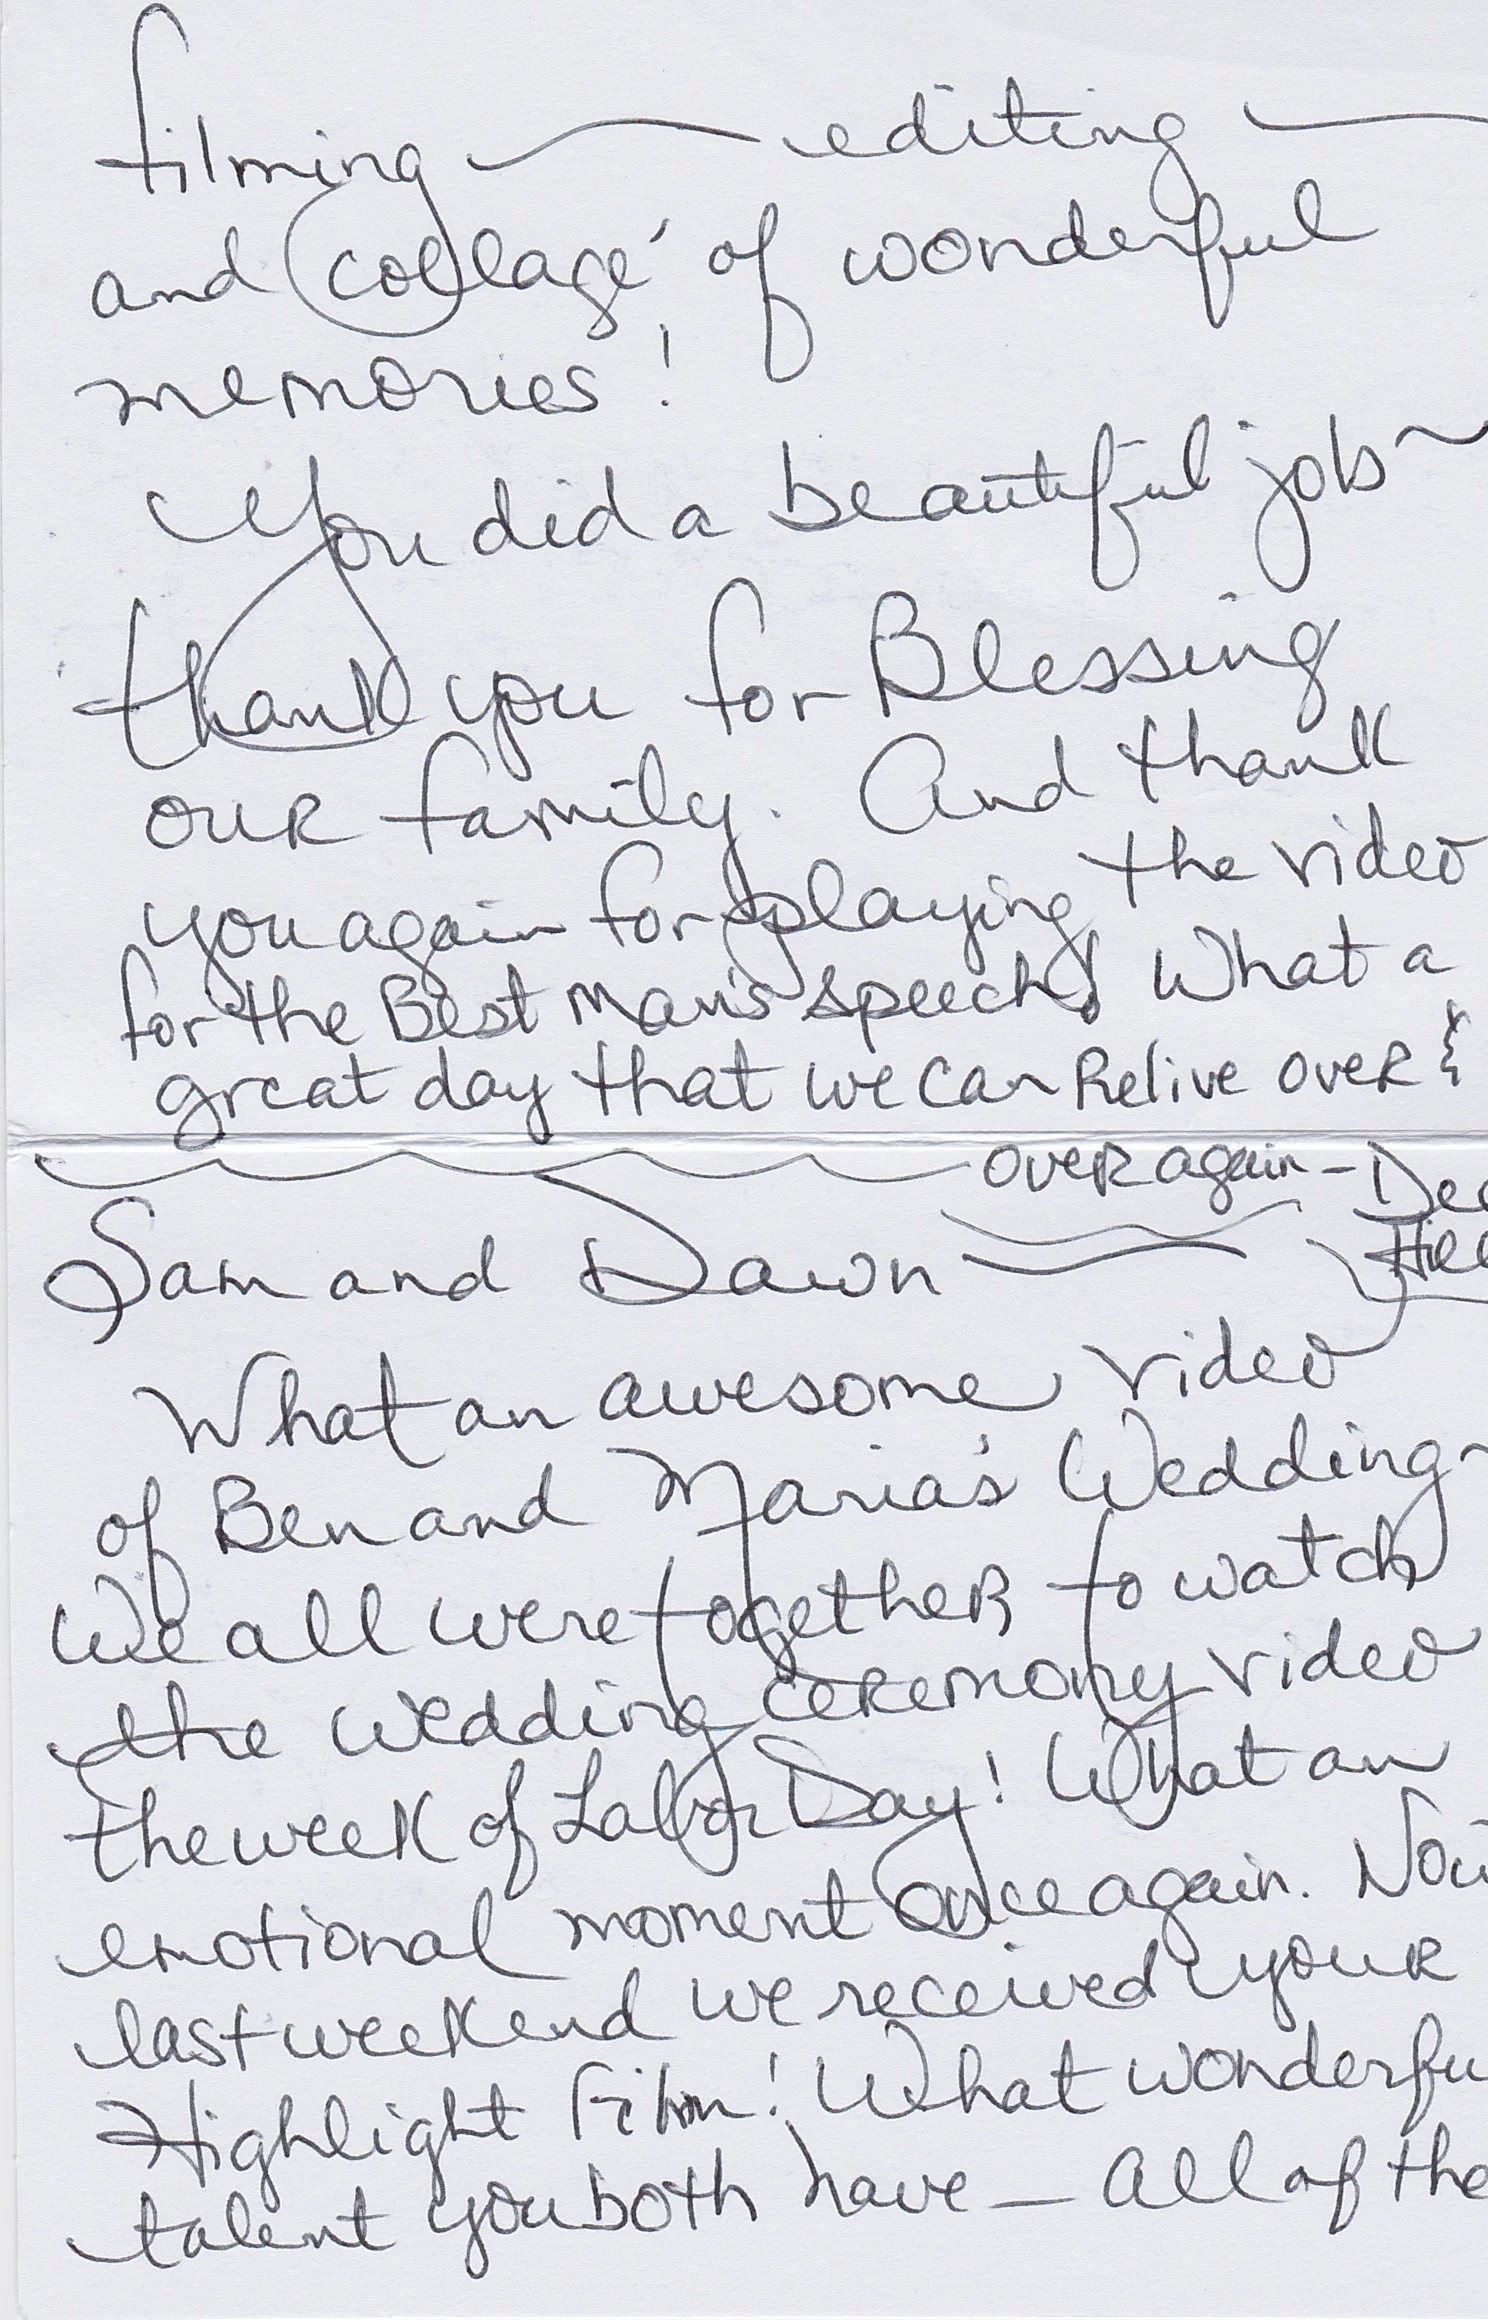 filming — editing —
and 'collage' of wonderful
memories!
You did a beautiful job ~
thank you for Blessing
our family. And thank
you again for playing the video
for the Best Man's speech! What a
great day that we can Relive over &
over again -
Sam and Dawn —
What an awesome video
of Ben and Maria's Wedding -
We all were together to watch
the wedding ceremony video
the week of Labor Day! What an
emotional moment once again.
last weekend we received your
Highlight Film! What wonderfu
talent you both have — All of the